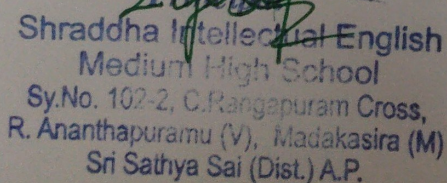 Shraddha Intellectual English
Medium High School
Sy.No. 102-2, C.Rangapuram Cross,
R. Ananthapuramu (V), Madakasira (M)
Sri Sathya Sai (Dist.) A.P.